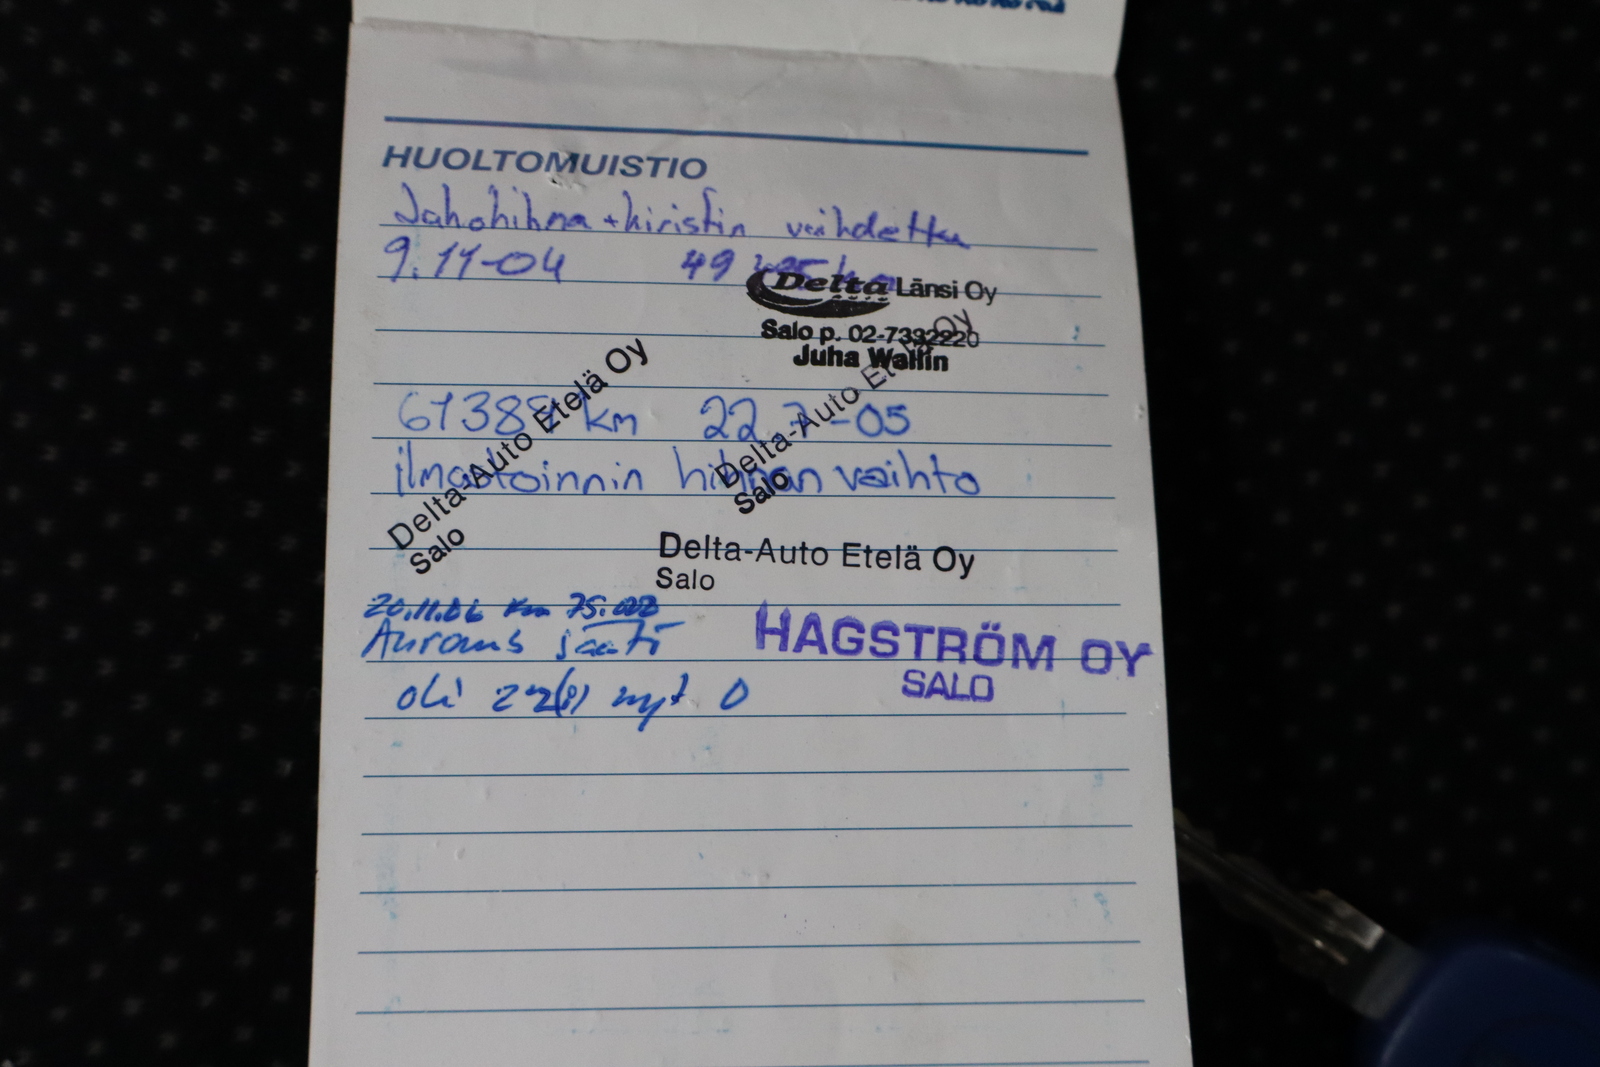 HUOLTOMUISTIO
Jakohihna + kiristin vaihdettu
9.11-04 49
Delta Länsi Oy
Salo p. 02-7332220
Juha Wallin
Delta-Auto Etelä Oy
Salo
Delta-Auto Etelä Oy
Salo
km 22.7-05
ilmastoinnin hihnan vaihto
Delta-Auto Etelä Oy
Salo
20.11.06 km 75.000
Auraus säätö
HAGSTRÖM OY
SALO
oli nyt 0